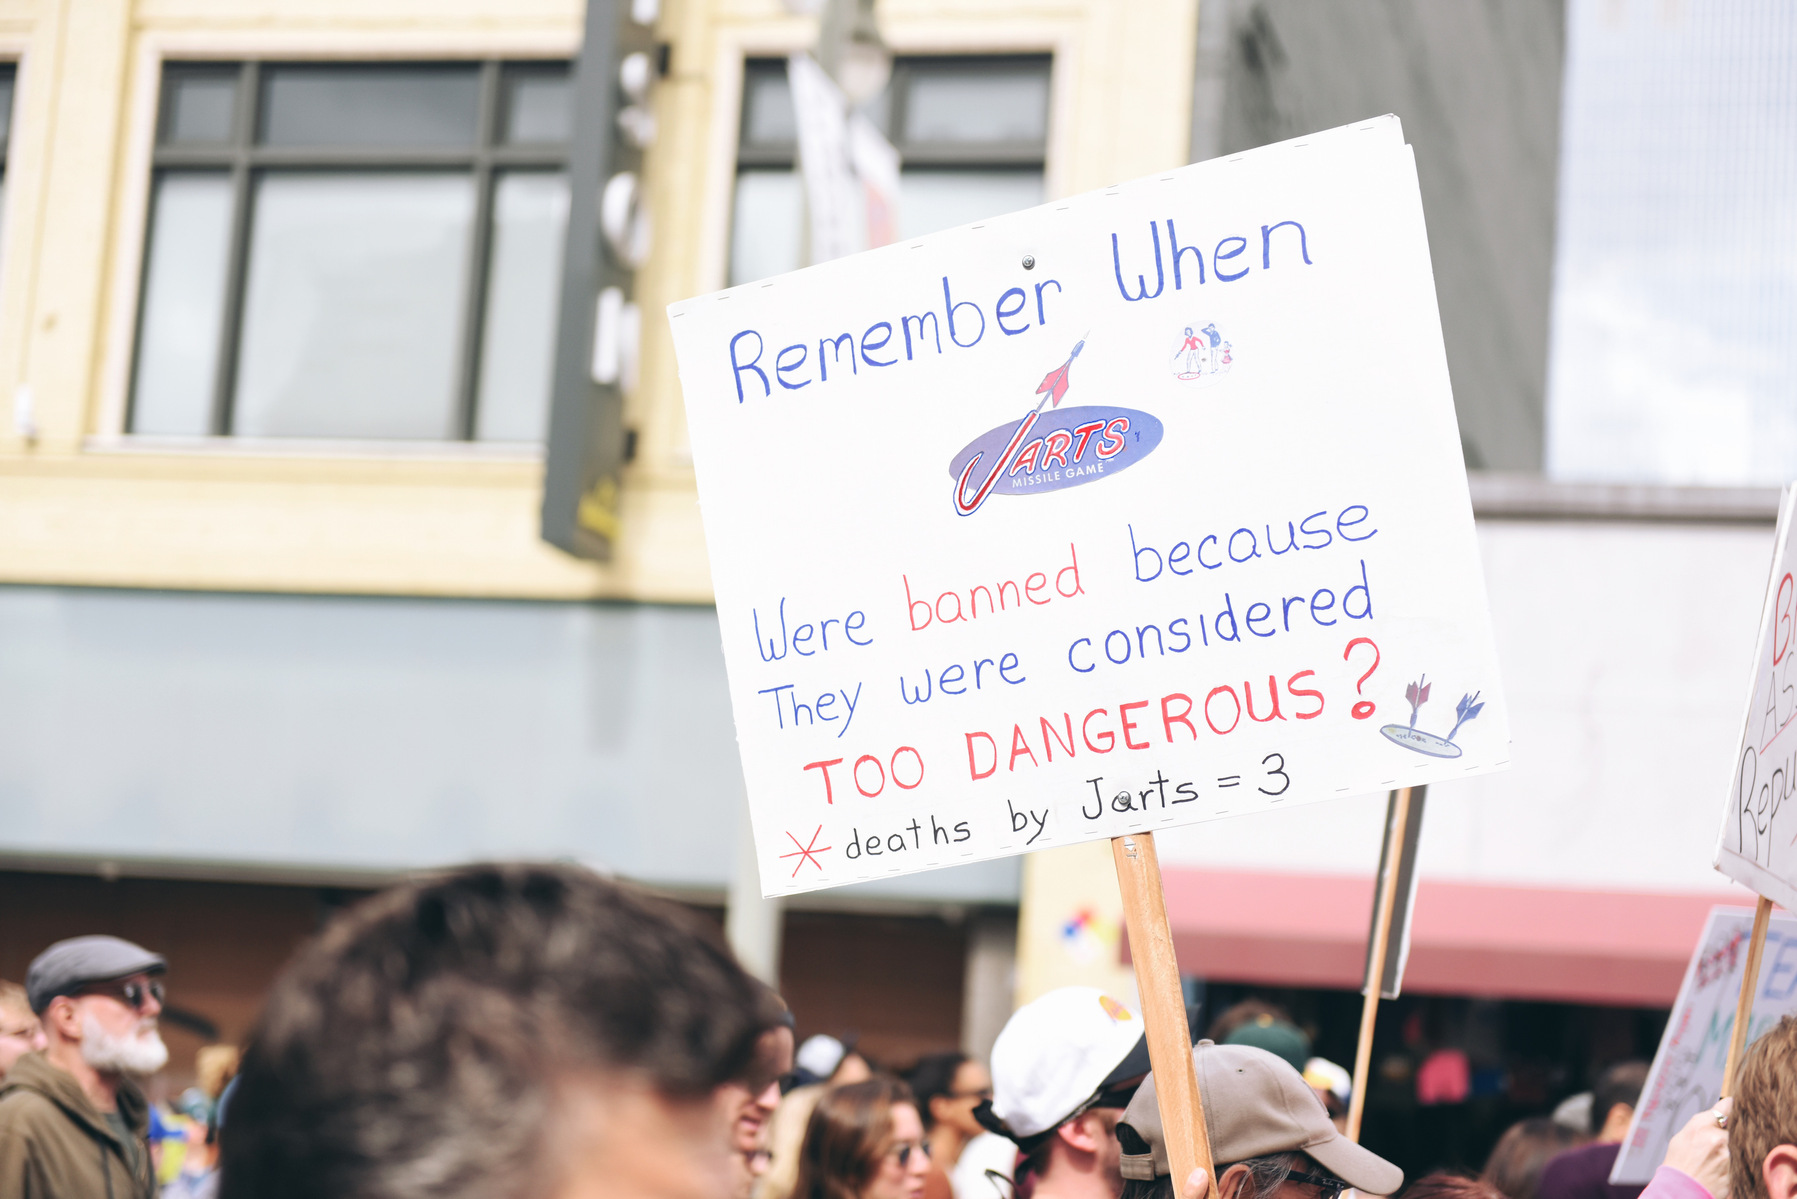 Remember When
JARTS
MISSILE GAME
Were banned because
They were considered
TOO DANGEROUS?
* deaths by Jarts = 3